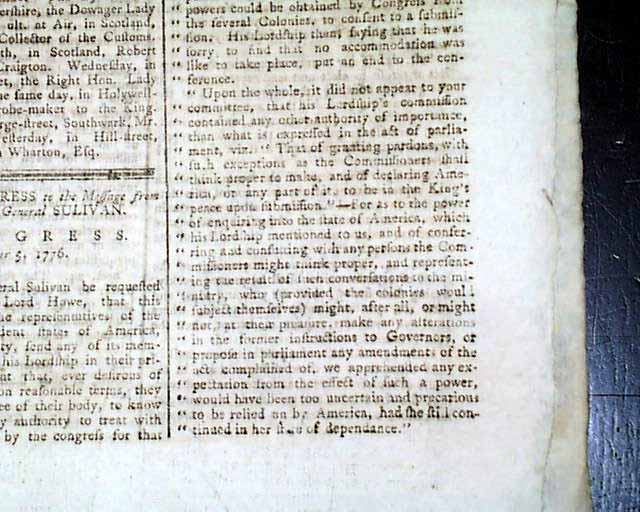 ershire, the Downger Lady
ult. at Air, in Scotland,
Collector of the Customs.
th, in Scotland, Robert
Craigton. Wednesday, in
et, the Right Hon. Lady
e same day, in Holywell-
robe-maker to the King.
rge-street, Southwark, Mr.
esterday, in Hill-street,
n Wharton, Esq.
RESS to the Message from
General SULIVAN.
G R E S S.
r 5, 1776.
eral Sulivan be requested
Lord Howe, that this
he representatives of the
dent states of America,
ty, send any of its mem-
his Lordship in their pri-
nt that, ever desirous of
on reasonable terms, they
ee of their body, to know
y authority to treat with
by the congress for that
“ powers could be obtained by Congress from
“ the several Colonies, to consent to a submiſ-
“ ſion. His Lordship then, ſaying that he was
“ ſorry to find that no accommodation was
“ like to take place, put an end to the con-
“ ference.
“ Upon the whole, it did not appear to your
“ committee, that his Lordſhip's commiſſion
“ contained any other authority of importance,
“ than what is expreſſed in the act of parlia-
“ ment, viz. “ That of granting pardons, with
“ ſuch exceptions as the Commiſſioners ſhall
“ think proper to make, and of declaring Ame-
“ rica, or any part of it, to be in the King's
“ peace upon ſubmiſſion.”—for as to the power
“ of enquiring into the ſtate of America, which
“ his Lordſhip mentioned to us, and of confer-
“ ring and conſulting with any perſons the Com-
“ miſſioners might think proper, and repreſent-
“ ing the reſult of ſuch converſations to the mi-
“ niſtry, who (provided the colonies would
“ ſubject themſelves) might, after all, or might
“ not, at their pleaſure, make any alterations
“ in the former inſtructions to Governors, or
“ propoſe in parliament any amendments of the
“ acts complained of, we apprehended any ex-
“ pectation from the effect of ſuch a power,
“ would have been too uncertain and precarious
“ to be relied on by America, had ſhe ſtill con-
“ tinued in her ſtate of dependance.”